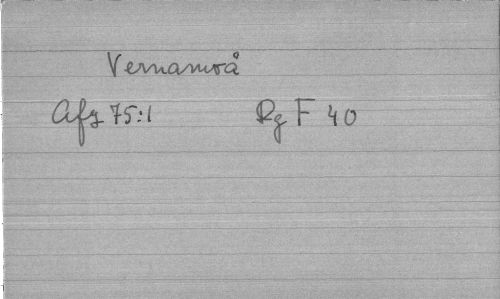 Vernamoå
Afz 75:1 Rg F 40